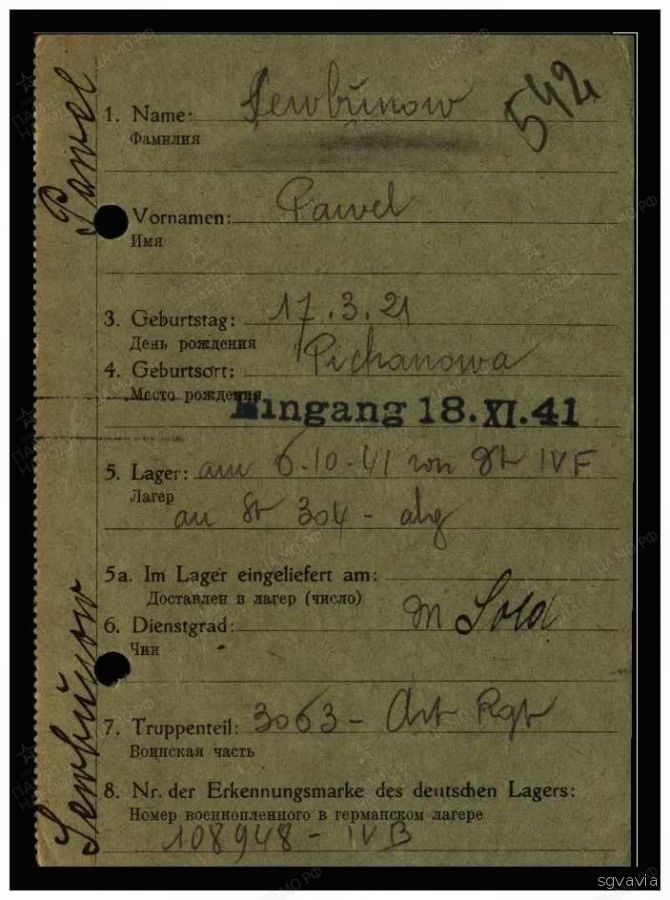 542
1. Name: Sewbunow
Фамилия
Vornamen: Pawel
Имя
3. Geburtstag: 17.3.21
День рождения
4. Geburtsort: Pichanowa
Место рождения
Eingang 18.XI.41
5. Lager: am 6.10.41 von St IVF
Лагерь
an St 304 - abg
5a. Im Lager eingeliefert am:
Доставлен в лагер (число)
6. Dienstgrad: Sold
Чин
7. Truppenteil: 3063 - Art Rgt
Воинская часть
8. Nr. der Erkennungsmarke des deutschen Lagers:
Номер военнопленного в германском лагере
108948 - IV B
Sewbunow Pawel
sgvavia